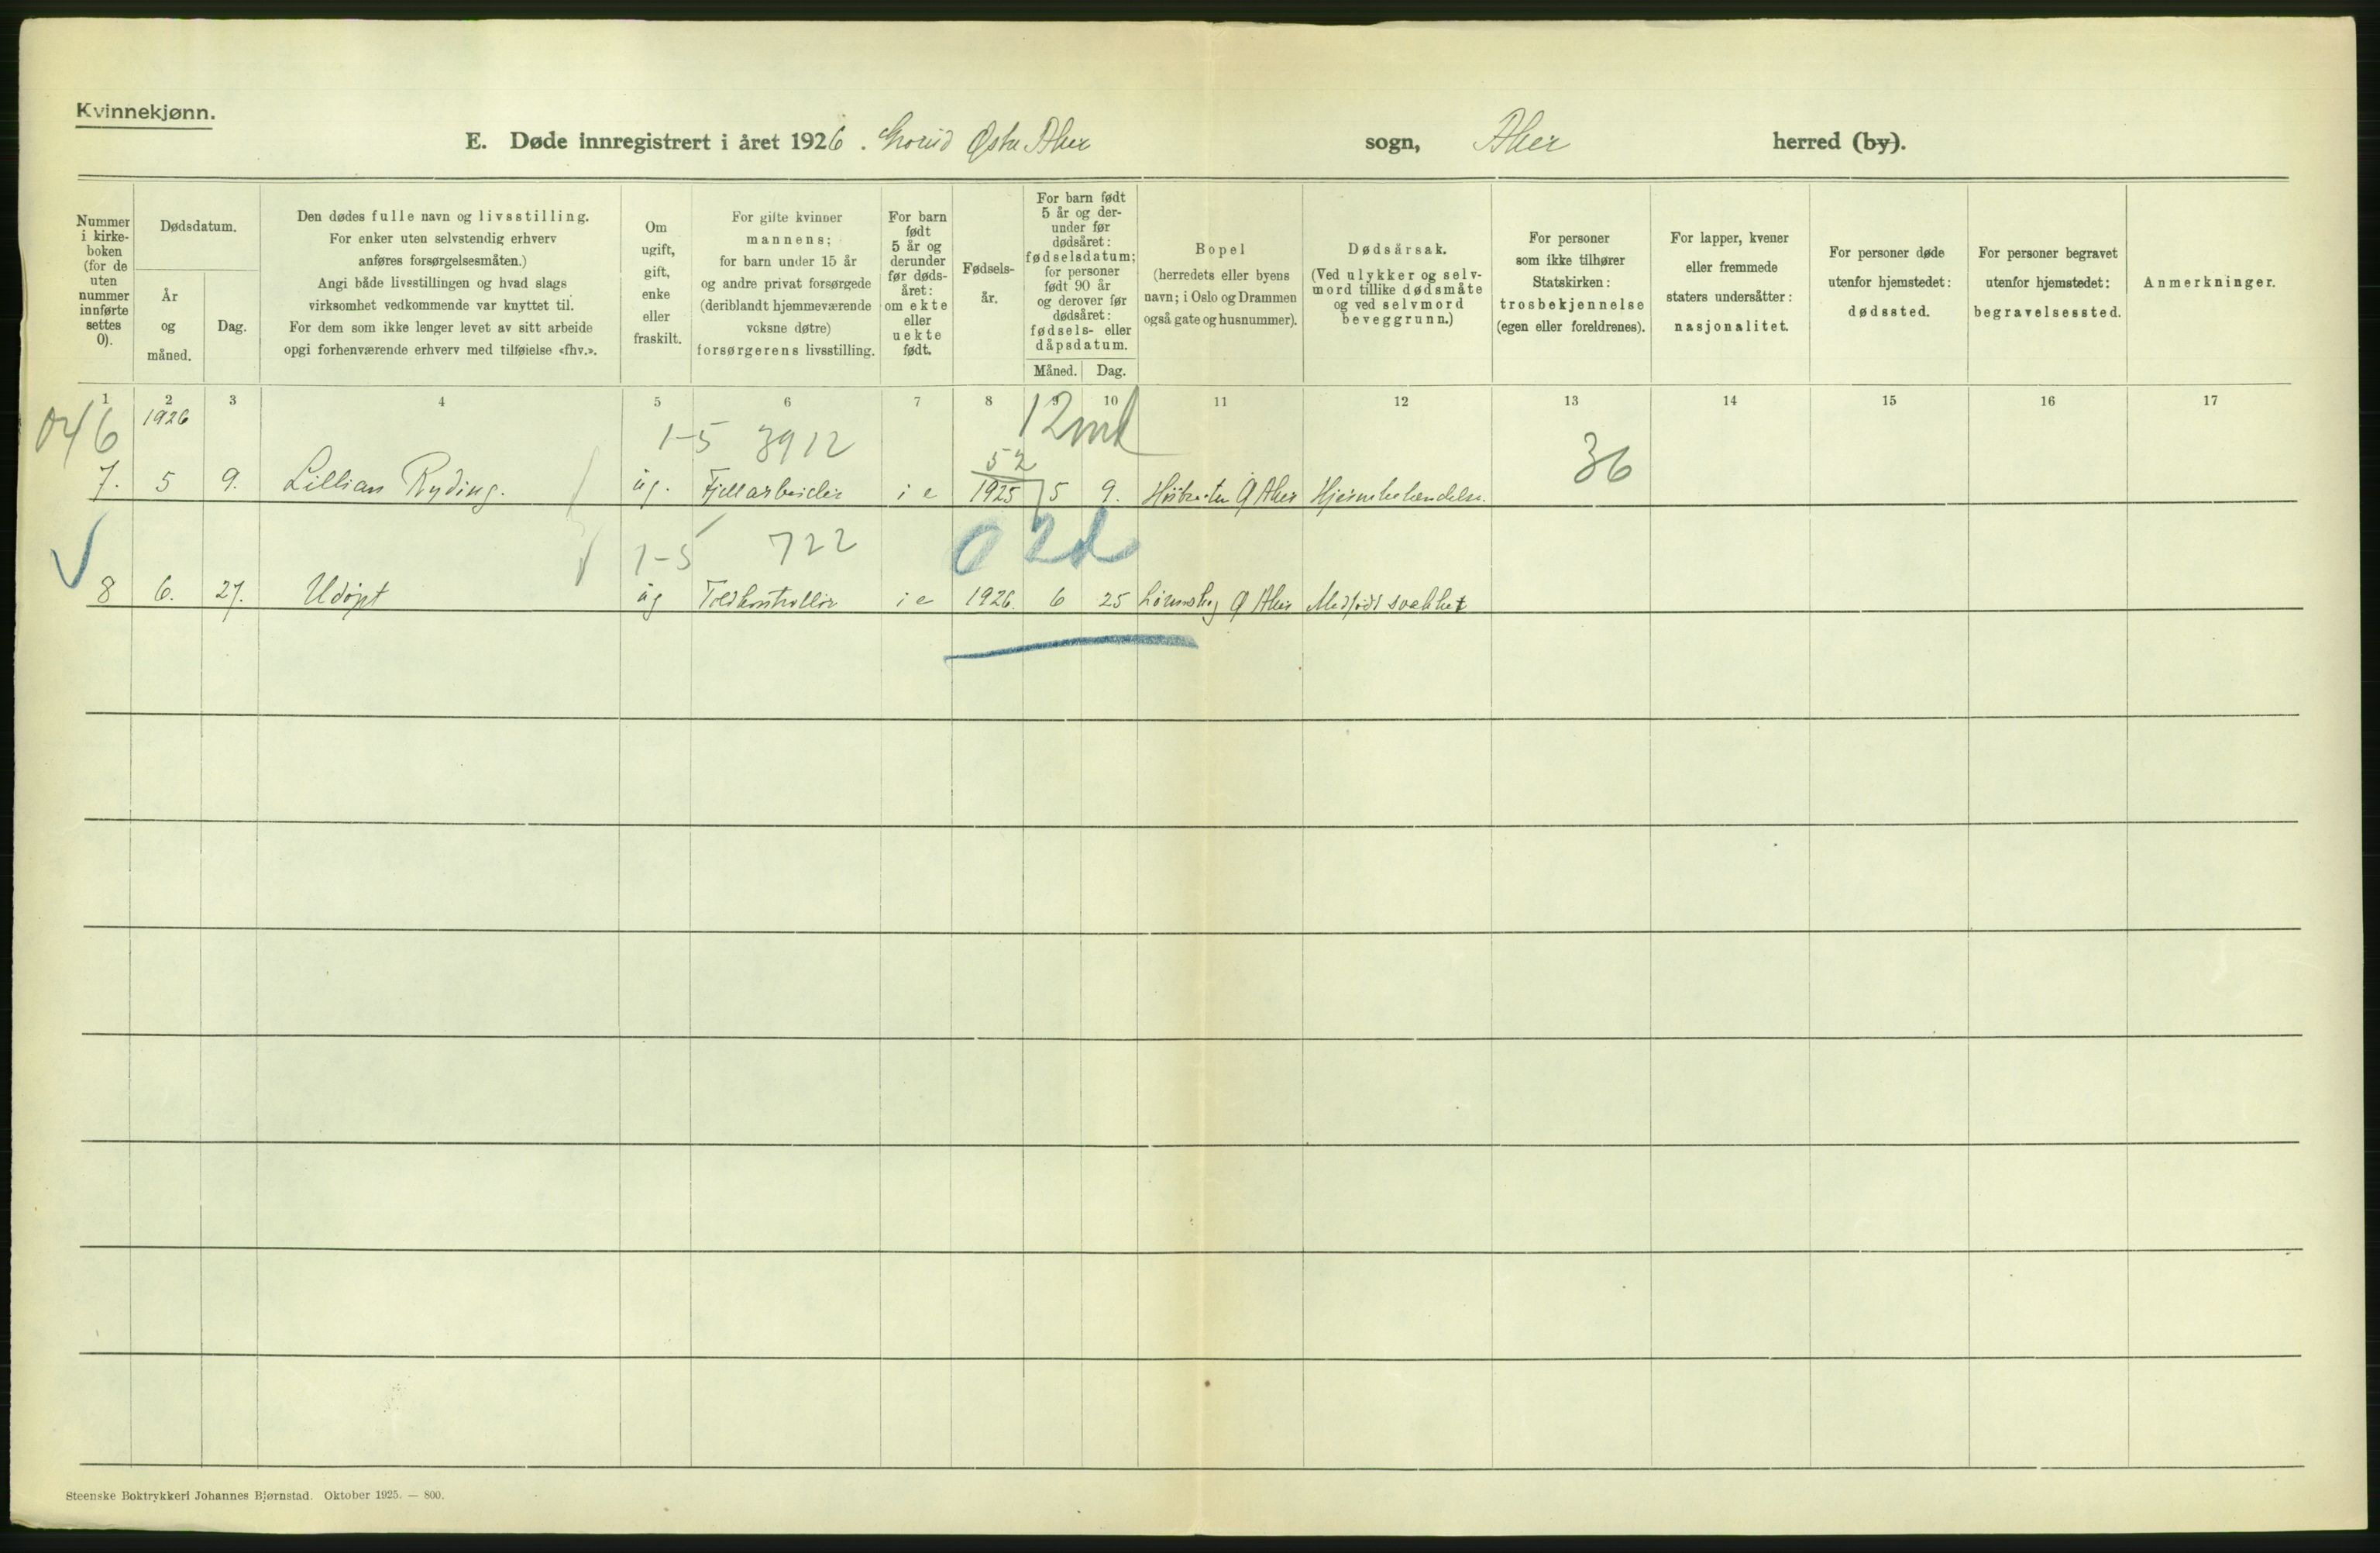 Kvinnekjønn.
E. Døde innregistrert i året 1926. Grorud Østre Aker sogn, Aker herred (by).
Nummer
i kirke-
boken
(for de
uten
nummer
innførte
settes
0).
Dødsdatum.
År
og
måned.
Dag.
Den dødes fulle navn og livsstilling.
For enker uten selvstendig erhverv
anføres forsørgelsesmåten.)
Angi både livsstillingen og hvad slags
virksomhet vedkommende var knyttet til.
For dem som ikke lenger levet av sitt arbeide
opgi forhenværende erhverv med tilføielse «fhv.».
Om
ugift,
gift,
enke
eller
fraskilt.
For gifte kvinner
mannens;
for barn under 15 år
og andre privat forsørgede
(deriblandt hjemmeværende
voksne døtre)
forsørgerens livsstilling.
For barn
født
5 år og
derunder
før døds-
året:
om ekte
eller
uekte
født.
Fødsels-
år.
For barn født
5 år og der-
under før
dødsåret:
fødselsdatum;
for personer
født 90 år
og derover før
dødsåret:
fødsels- eller
dåpsdatum.
Måned. Dag.
Bopel
(herredets eller byens
navn; i Oslo og Drammen
også gate og husnummer).
Dødsårsak.
(Ved ulykker og selv-
mord tillike dødsmåte
og ved selvmord
beveggrunn.)
For personer
som ikke tilhører
Statskirken:
trosbekjennelse
(egen eller foreldrenes).
For lapper, kvener
eller fremmede
staters undersåtter:
nasjonalitet.
For personer døde
utenfor hjemstedet:
dødssted.
For personer begravet
utenfor hjemstedet:
begravelsessted.
Anmerkninger.
1 2 3 4 5 6 7 8 9 10 11 12 13 14 15 16 17
1926
1-5 3912 12md
52 36
7. 5 9. Lillian Ryding. ug. Fjellarbeider i e 1925 5 9. Ø Aker Hjernebetændelse.
1-5 722 0 2d
8 6. 27. Udøpt ug Toldkontrollør i e 1926. 6 25 Lørenskog Ø Aker Medfødt svakhet
Steenske Boktrykkeri Johannes Bjørnstad. Oktober 1925. — 800.